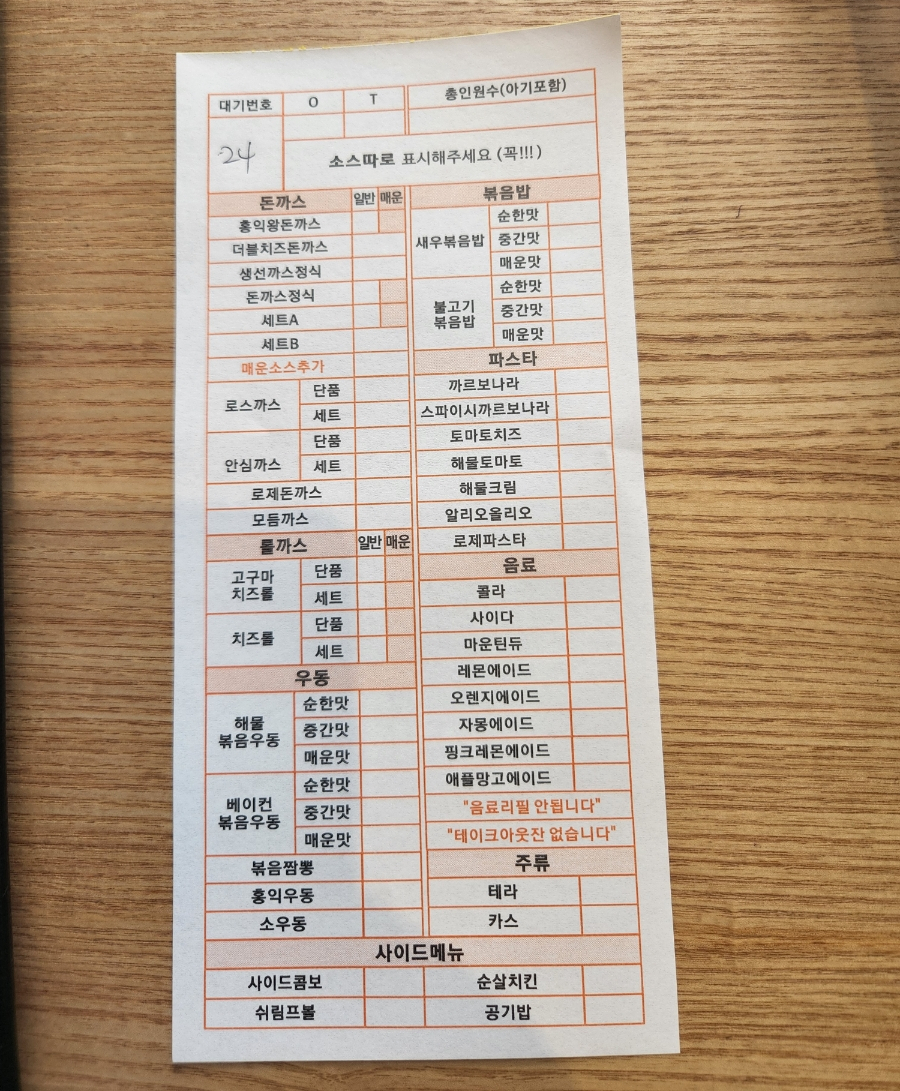 대기번호 O T 총인원수(아기포함)
24
소스따로 표시해주세요 (꼭!!!)
돈까스 일반 매운
홍익왕돈까스
더블치즈돈까스
생선까스정식
돈까스정식
세트A
세트B
매운소스추가
로스까스 단품
세트
안심까스 단품
세트
로제돈까스
모듬까스
롤까스 일반 매운
고구마
치즈롤
단품
세트
치즈롤 단품
세트
우동
해물
볶음우동
순한맛
중간맛
매운맛
베이컨
볶음우동
순한맛
중간맛
매운맛
볶음짬뽕
홍익우동
소우동
볶음밥
새우볶음밥
순한맛
중간맛
매운맛
불고기
볶음밥
순한맛
중간맛
매운맛
파스타
까르보나라
스파이시까르보나라
토마토치즈
해물토마토
해물크림
알리오올리오
로제파스타
음료
콜라
사이다
마운틴듀
레몬에이드
오렌지에이드
자몽에이드
핑크레몬에이드
애플망고에이드
"음료리필 안됩니다"
"테이크아웃잔 없습니다"
주류
테라
카스
사이드메뉴
사이드콤보 순살치킨
쉬림프볼 공기밥